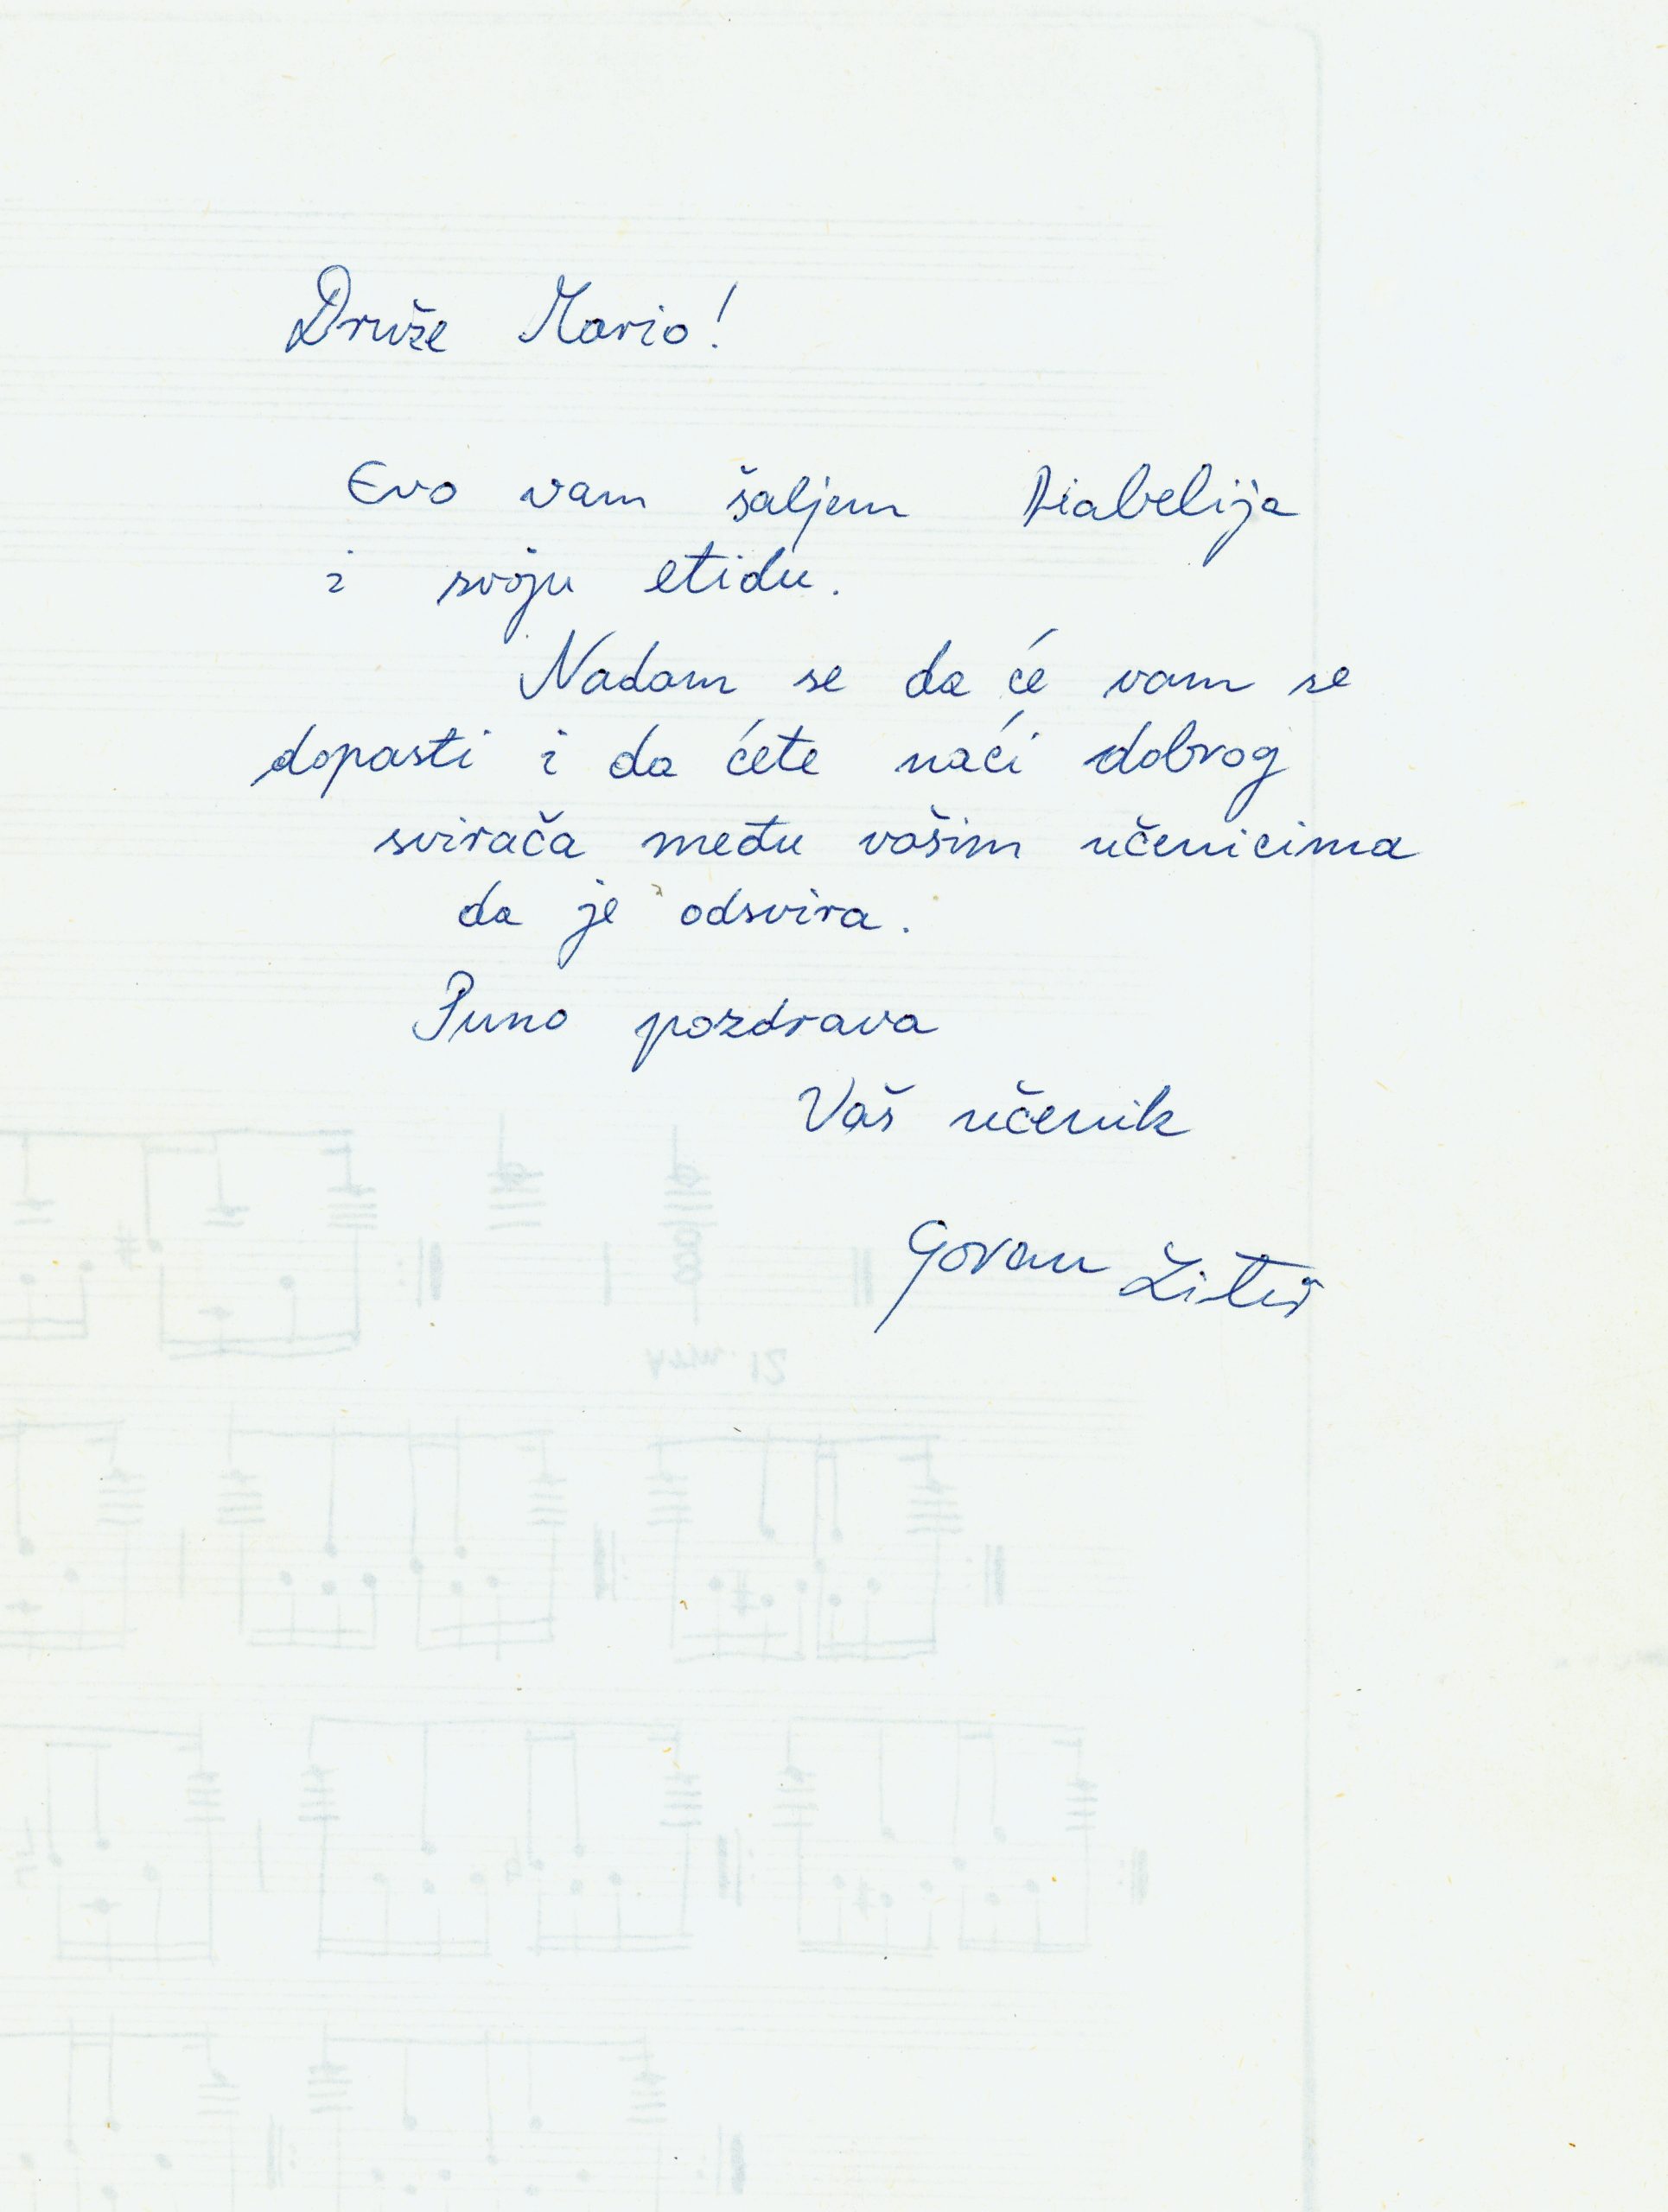 Druže Mario!
Evo vam šaljem Diabelija
i svoju etidu.
Nadam se da će vam se
dopasti i da ćete naći dobrog
svirača među vašim učenicima
da je odsvira.
Puno pozdrava
Vaš učenik
Goran